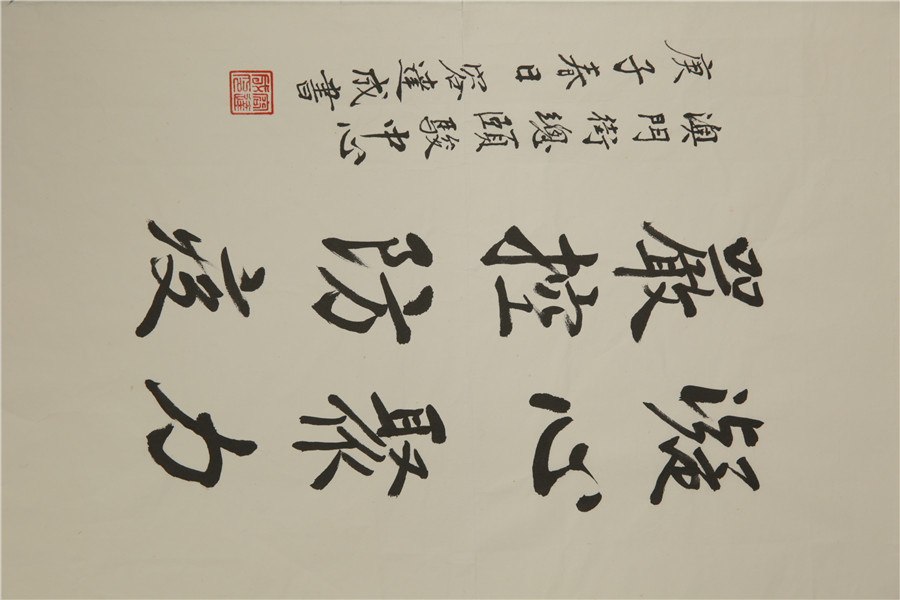 凝心聚力
嚴控防疫
澳門街總頤駿中心
庚子春日容達成書